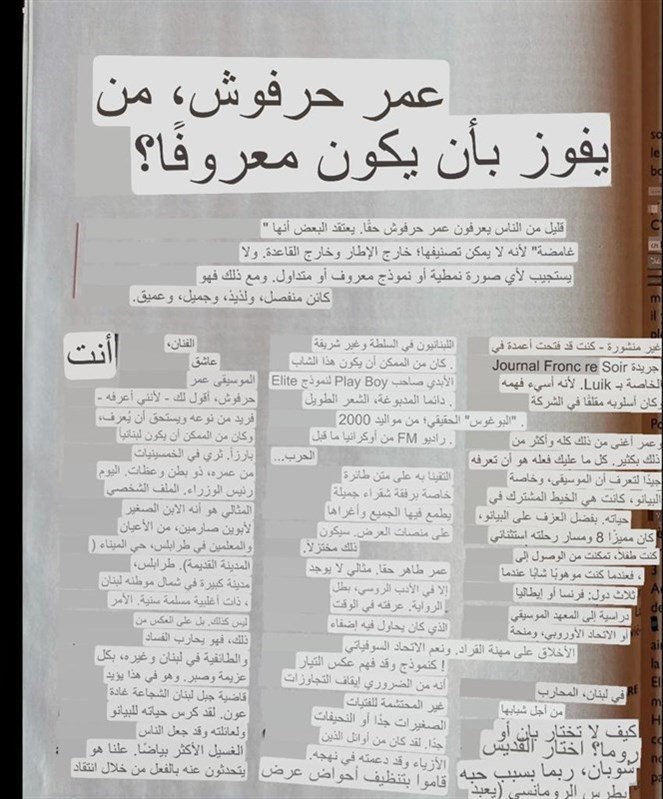 عمر حرفوش، من
يفوز بأن يكون معروفًا؟
قليل من الناس يعرفون عمر حرفوش حقًا. يعتقد البعض أنها "
غامضة" لأنه لا يمكن تصنيفها؛ خارج الإطار وخارج القاعدة. ولا
يستجيب لأي صورة نمطية أو نموذج معروف أو متداول. ومع ذلك فهو
كائن منفصل، ولذيذ، وجميل، وعميق.
أنت
الفنان،
عاشق
الموسيقى عمر
حرفوش، أقول لك - لأنني أعرفه -
فريد من نوعه ويستحق أن يُعرف،
وكان من الممكن أن يكون لبنانياً
بارزاً. ثري في الخمسينيات
من عمره، ذو بطن وعظات. اليوم
رئيس الوزراء. الملف الشخصي
المثالي هو أنه الابن الصغير
لأبوين صارمين، من الأعيان
والمعلمين في طرابلس، حي الميناء (
المدينة القديمة). طرابلس،
مدينة كبيرة في شمال موطنه لبنان
، ذات أغلبية مسلمة سنية. الأمر
ليس كذلك. بل على العكس من
ذلك، فهو يحارب الفساد
والطائفية في لبنان وغيره، بكل
عزيمة وصبر. وهو في هذا يؤيد
قاضية جبل لبنان الشجاعة غادة
عون. لقد كرس حياته للبيانو
ولعائلته وقد جعل الناس
الغسيل الأكثر بياضًا. علنا هو
يتحدثون عنه بالفعل من خلال انتقاد
اللبنانيون في السلطة وغير شريفة
. كان من الممكن أن يكون هذا الشاب
الأبدي صاحب Play Boy لنموذج Elite
. دائما المدبوغة، الشعر الطويل
. "البوغوس" الحقيقي؛ من مواليد 2000
. راديو FM من أوكرانيا ما قبل
الحرب...
التقينا به على متن طائرة
خاصة برفقة شقراء جميلة
يطمع فيها الجميع وأغراها
على منصات العرض. سيكون
ذلك مختزلاً.
عمر طاهر حقا. مثالي لا يوجد
إلا في الأدب الروسي، بطل
الرواية. عرفته في الوقت
الذي كان يحاول فيه إضفاء
الأخلاق على مهنة القراد. ونعم الاتحاد السوفياتي
! كنموذج وقد فهم عكس التيار
أنه من الضروري إيقاف التجاوزات
غير المحتشمة للفتيات
الصغيرات جدًا أو النحيفات
جدًا. لقد كان من أوائل الذين
الأزياء وقد دعمته في نهجه.
قاموا بتنظيف أحواض عرض
غير منشورة - كنت قد فتحت أعمدة في
جريدة Journal Fronc re Soir
الخاصة بـ Luik. لأنه أسيء فهمه
كان أسلوبه مقلقًا في الشركة
.
وعمر أغنى من ذلك كله وأكثر من
ذلك بكثير. كل ما عليك فعله هو أن تعرفه
جيدًا لتعرف أن الموسيقى، وخاصة
البيانو، كانت هي الخيط المشترك في
حياته. بفضل العزف على البيانو،
كان مميزًا 8 ومسار رحلته استثنائي
كنت طفلاً، تمكنت من الوصول إلى
، فعندما كنت موهوبًا شابًا عندما
ثلاث دول: فرنسا أو إيطاليا
دراسية إلى المعهد الموسيقي
أو الاتحاد الأوروبي، ومنحة
في لبنان، المحارب
من أجل شبابها
كيف لا تختار بان أو
روما؟ اختار القديس
شوبان، ربما بسبب حبه
بطرس الرومانسي (يعبد